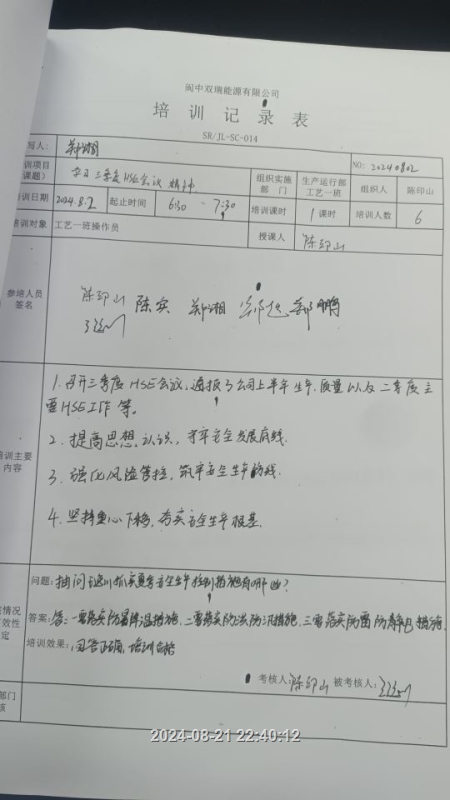 阆中双瑞能源有限公司
培训记录表
SR/JL-SC-014
写人： 郑湘 NO: 20240802
训项目
课题） 学习三季度HSE会议精神 组织实施部门 生产运行部工艺一班 组织人 陈印山
培训日期 2024.8.2 起止时间 6:30 - 7:30 培训课时 1课时 培训人数 6
培训对象 工艺一班操作员 授课人 陈印山
参培人员
签名
陈印山 陈实 郑湘 郑鹏
培训主要
内容
1. 召开三季度HSE会议，通报了公司上半年生产、质量以及二季度主
要HSE工作等。
2. 提高思想认识，牢牢安全发展底线.
3. 强化风险管控，筑牢安全生产防线.
4. 坚持重心下移，夯实安全生产根基.
问题：抽问 夏季安全生产控制措施有哪些?
答案：答：一要落实防暑降温措施，二要落实防洪防汛措施，三要落实防雷防静电措施.
培训效果：回答正确，培训合格
考核人：陈印山 被考核人：
2024-08-21 22:40:12